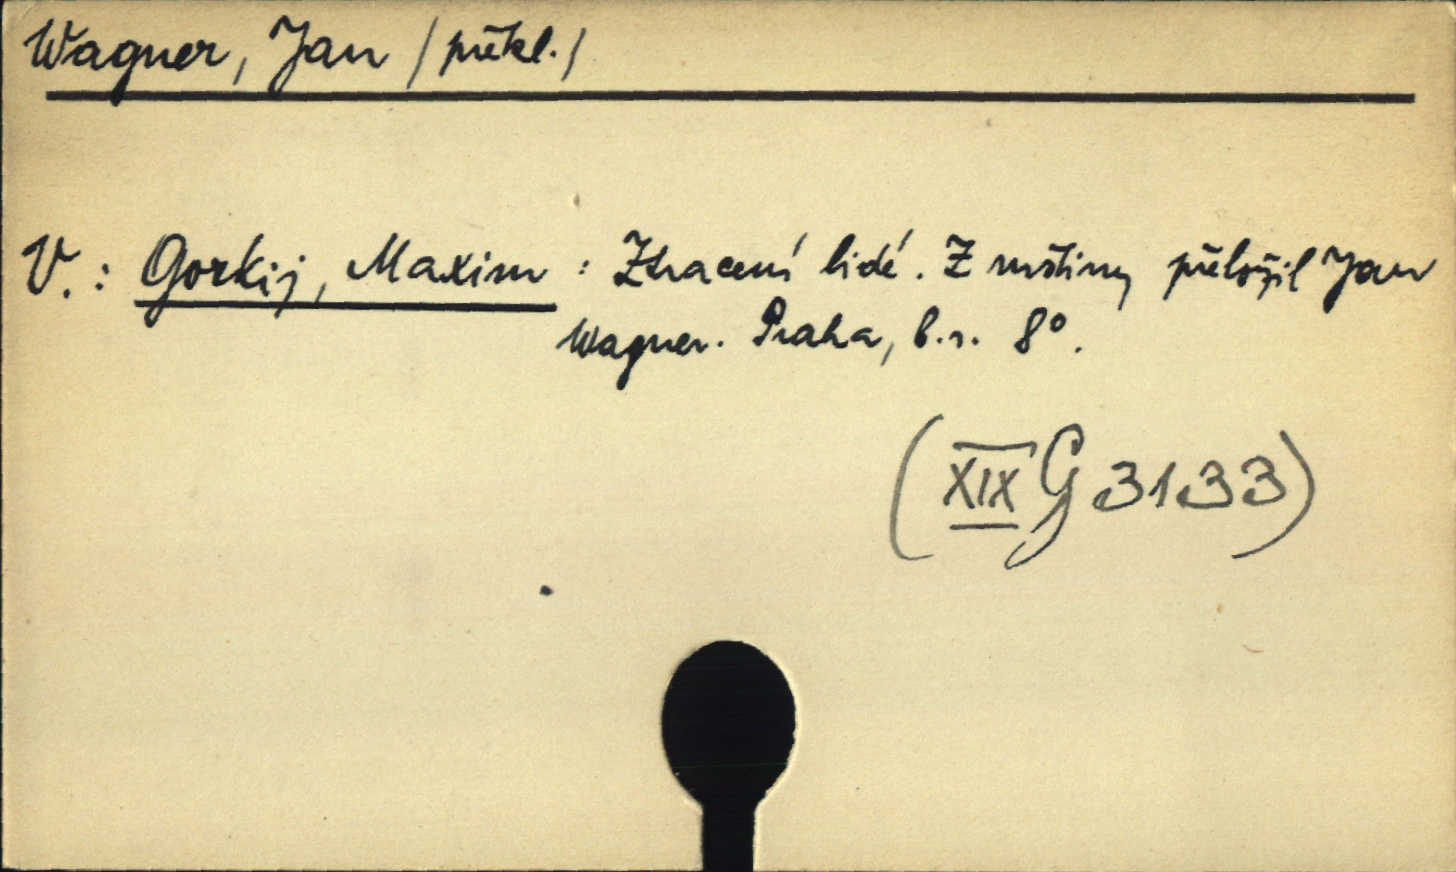 Wagner, Jan /překl./
V.: Gorkij, Maxim: Ztracení lidé. Z ruštiny přeložil Jan
Wagner. Praha, b.r. 8°.
(XIX G 3133)